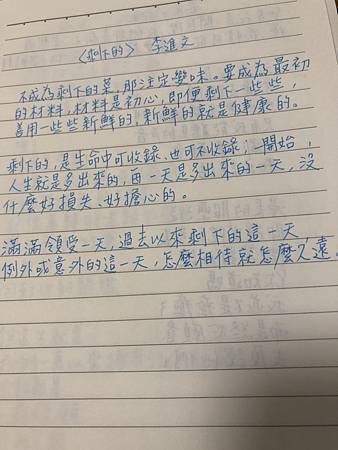 〈剩下的〉 李進文
不成為剩下的菜,那注定變味。要成為最初
的材料,材料是初心,即便剩下一些些,
善用一些些新鮮的,新鮮的就是健康的。
剩下的,是生命中可收錄、也可不收錄;一開始,
人生就是多出來的,每一天是多出來的一天,沒
什麼好損失、好擔心的。
滿滿領受一天,過去以來剩下的這一天
例外或意外的這一天,怎麼相待就怎麼久遠。